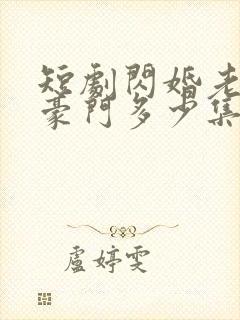 短劇閃婚老
豪門多少集
盧婷雯